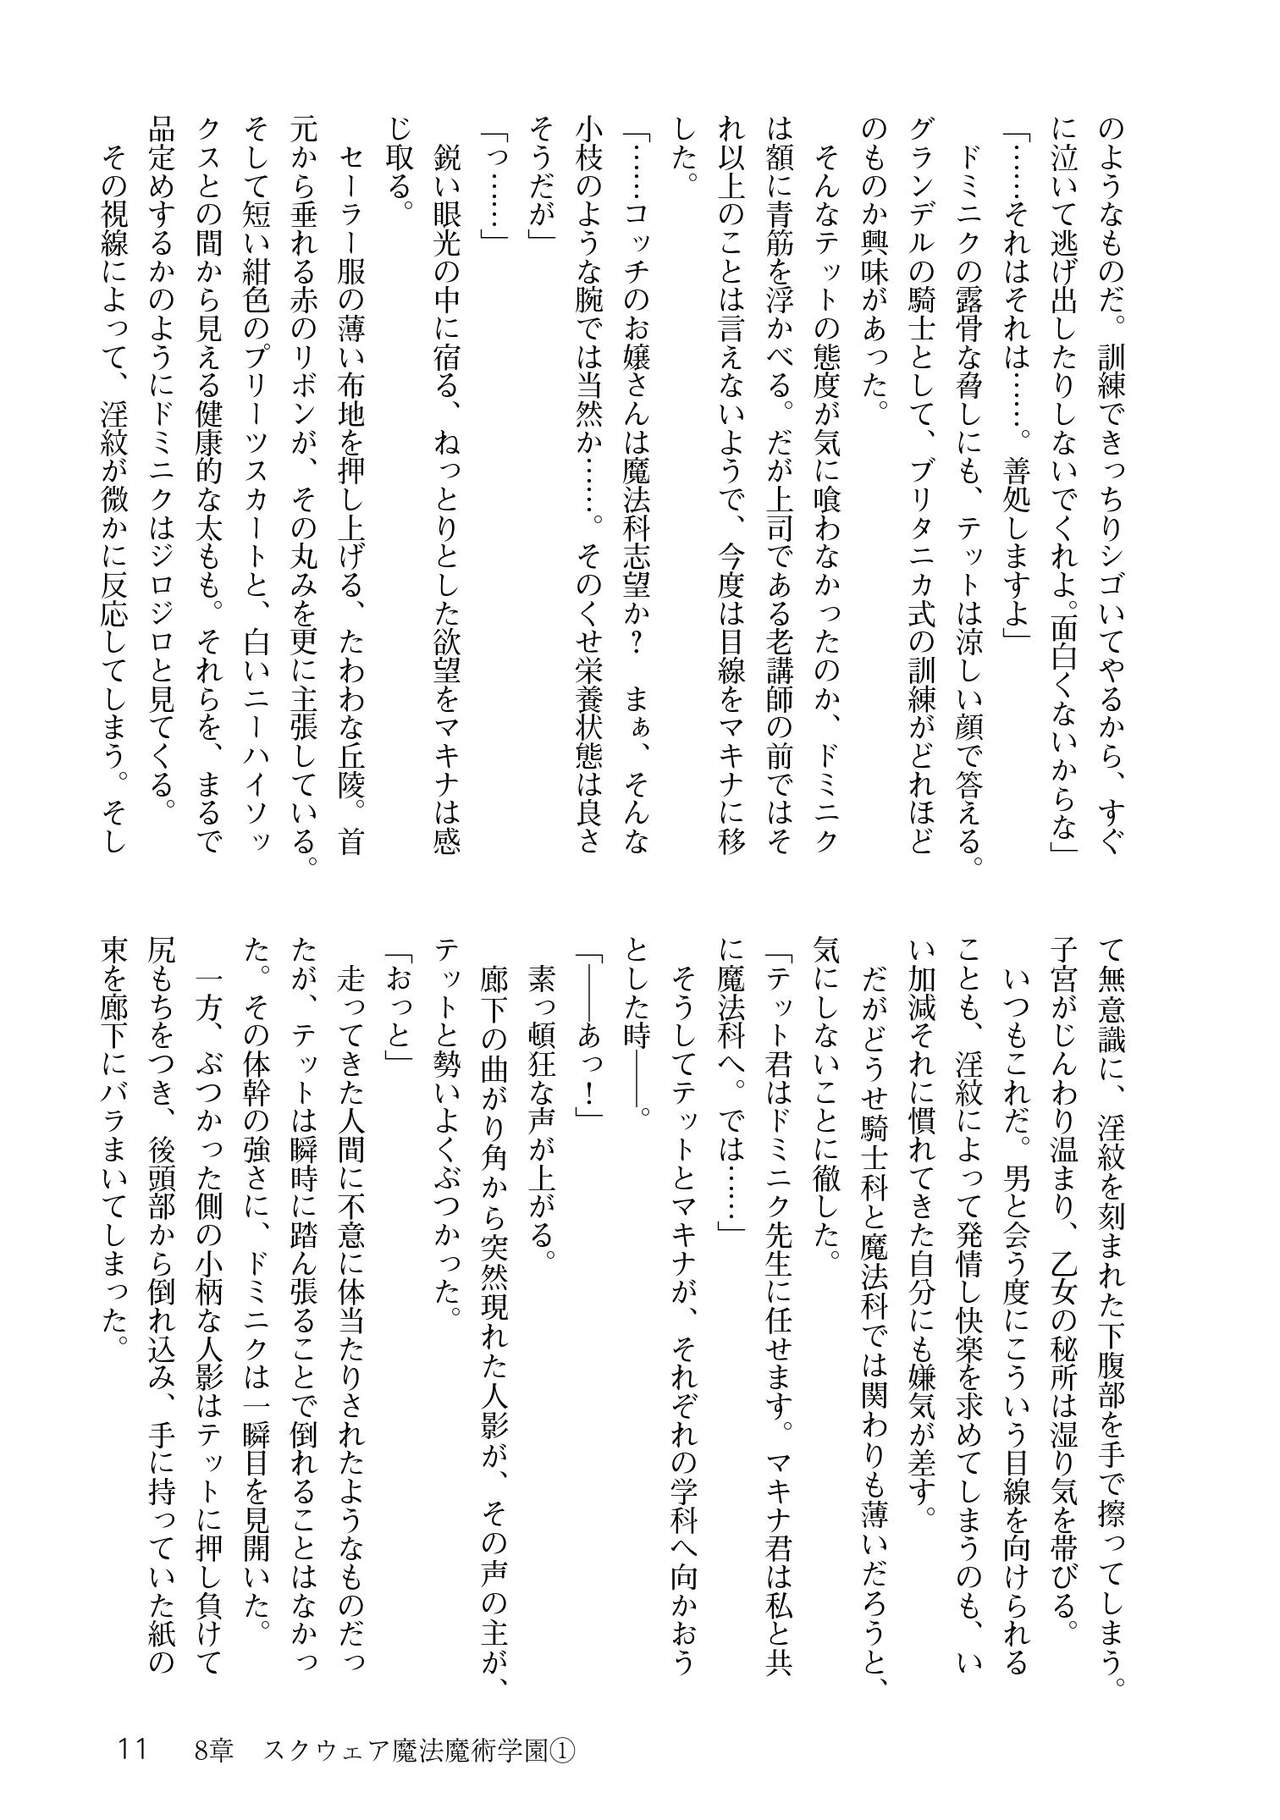 のようなものだ。訓練できっちりシゴいてやるから、すぐ
に泣いて逃げ出したりしないでくれよ。面白くないからな」
「……それはそれは……。善処しますよ」
ドミニクの露骨な脅しにも、テットは涼しい顔で答える。
グランデルの騎士として、ブリタニカ式の訓練がどれほど
のものか興味があった。
そんなテットの態度が気に喰わなかったのか、ドミニク
は額に青筋を浮かべる。だが上司である老講師の前ではそ
れ以上のことは言えないようで、今度は目線をマキナに移
した。
「……コッチのお嬢さんは魔法科志望か？　まぁ、そんな
小枝のような腕では当然か……。そのくせ栄養状態は良さ
そうだが」
「っ……」
鋭い眼光の中に宿る、ねっとりとした欲望をマキナは感
じ取る。
セーラー服の薄い布地を押し上げる、たわわな丘陵。首
元から垂れる赤のリボンが、その丸みを更に主張している。
そして短い紺色のプリーツスカートと、白いニーハイソッ
クスとの間から見える健康的な太もも。それらを、まるで
品定めするかのようにドミニクはジロジロと見てくる。
その視線によって、淫紋が微かに反応してしまう。そし
て無意識に、淫紋を刻まれた下腹部を手で擦ってしまう。
子宮がじんわり温まり、乙女の秘所は湿り気を帯びる。
いつもこれだ。男と会う度にこういう目線を向けられる
ことも、淫紋によって発情し快楽を求めてしまうのも、い
い加減それに慣れてきた自分にも嫌気が差す。
だがどうせ騎士科と魔法科では関わりも薄いだろうと、
気にしないことに徹した。
「テット君はドミニク先生に任せます。マキナ君は私と共
に魔法科へ。では……」
そうしてテットとマキナが、それぞれの学科へ向かおう
とした時――。
「――あっ！」
素っ頓狂な声が上がる。
廊下の曲がり角から突然現れた人影が、その声の主が、
テットと勢いよくぶつかった。
「おっと」
走ってきた人間に不意に体当たりされたようなものだっ
たが、テットは瞬時に踏ん張ることで倒れることはなかっ
た。その体幹の強さに、ドミニクは一瞬目を見開いた。
一方、ぶつかった側の小柄な人影はテットに押し負けて
尻もちをつき、後頭部から倒れ込み、手に持っていた紙の
束を廊下にバラまいてしまった。
11　8章　スクウェア魔法魔術学園①